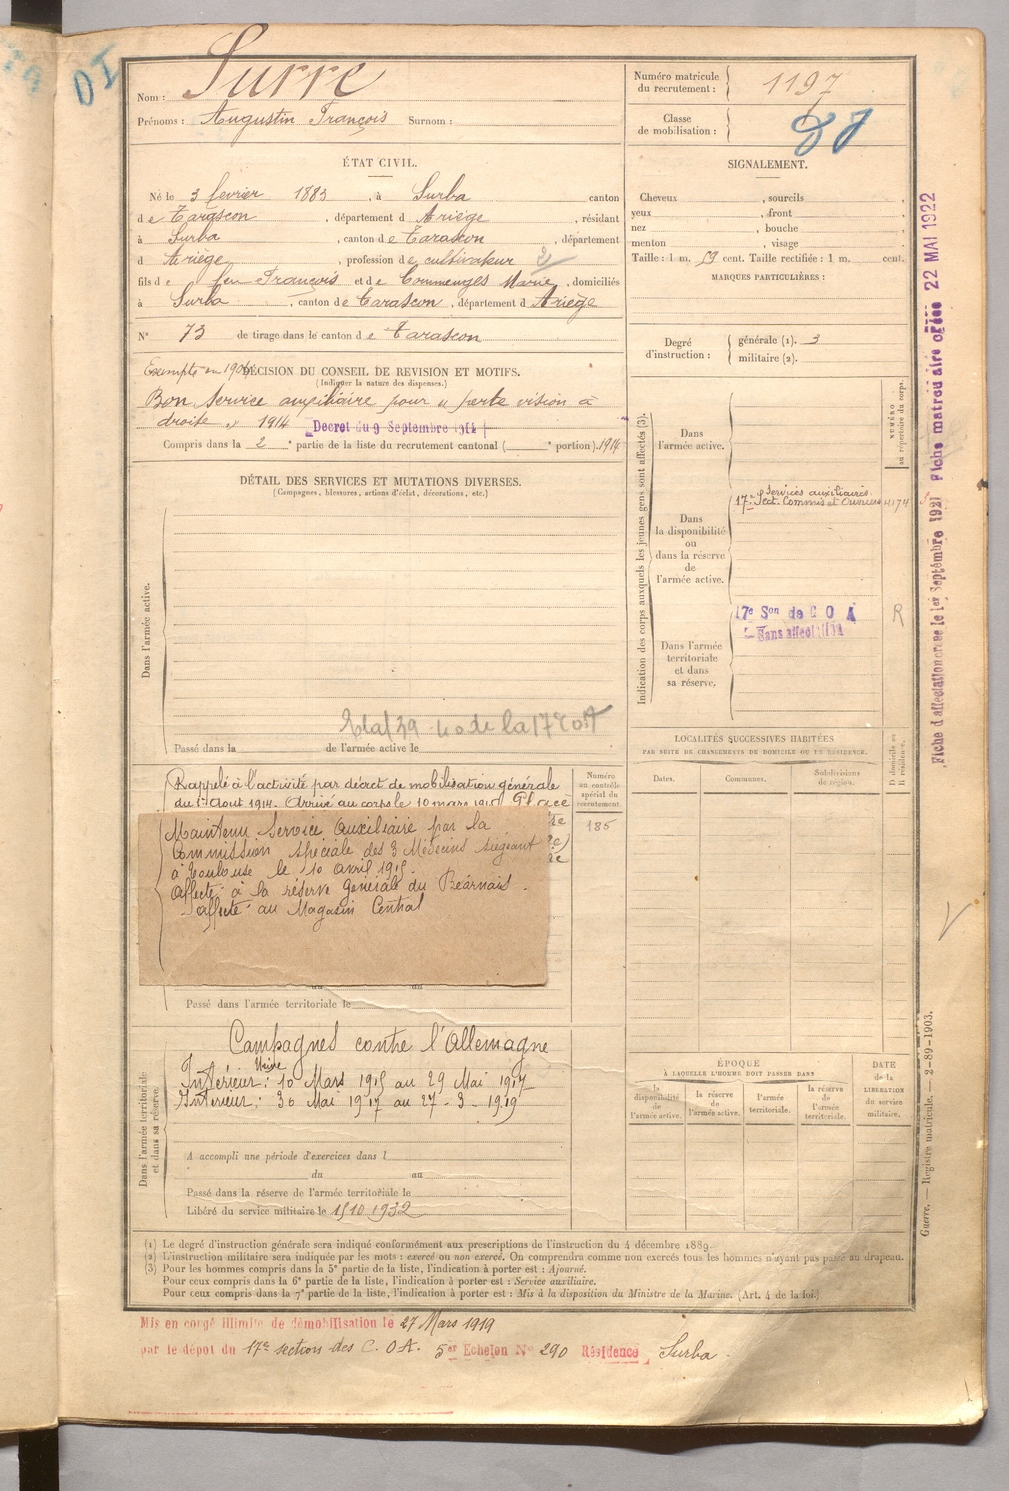 Nom : Surre
Prénoms : Augustin François Surnom :
Numéro matricule du recrutement : 1197
Classe de mobilisation :
ÉTAT CIVIL.
Né le 3 fevrier 1883, à Surba canton
de Tarascon, département d Ariège, résidant
à Surba, canton de Tarascon, département
d Ariège, profession de cultivateur 2
fils de feu François et de Commenges Marie, domiciliés
à Surba, canton de Tarascon, département d Ariège
N° 73 de tirage dans le canton de Tarascon
SIGNALEMENT.
Cheveux , sourcils ,
yeux , front ,
nez , bouche ,
menton , visage
Taille : 1 m. 59 cent. Taille rectifiée : 1 m. cent.
MARQUES PARTICULIÈRES :
Degré d'instruction :
générale (1). 3
militaire (2).
Exempté en 1904
DÉCISION DU CONSEIL DE REVISION ET MOTIFS.
(Indiquer la nature des dispenses.)
Bon Service auxiliaire pour « perte vision à
droite » 1914 Decret du 9 Septembre 1914
Compris dans la 2e partie de la liste du recrutement cantonal ( e portion). 1914
DÉTAIL DES SERVICES ET MUTATIONS DIVERSES.
(Campagnes, blessures, actions d'éclat, décorations, etc.)
Dans l'armée active.
Passé dans la de l'armée active le
Indication des corps auxquels les jeunes gens sont affectés (3).
NUMÉRO au répertoire du corps.
Dans l'armée active.
Dans la disponibilité ou dans la réserve de l'armée active.
Services auxiliaires
17e Sect. Commis et Ouvriers 4174
Dans l'armée territoriale et dans sa réserve.
17e Son de C O A
Sans affectation
R
Fiche d'affectation créée le 1er Septembre 1921 Fiche matricu aire créée 22 MAI 1922
LOCALITÉS SUCCESSIVES HABITÉES
PAR SUITE DE CHANGEMENTS DE DOMICILE OU DE RÉSIDENCE.
D domicile ou R résidence.
Dates.
Communes.
Subdivisions de région.
Rappelé à l'activité par décret de mobilisation générale
du 1er Août 1914. Arrivé au corps le 10 mars 1915 Placé
Numéro au contrôle spécial du recrutement
185
Maintenu Service Auxiliaire par la
Commission spéciale des 3 Médecins siégeant
à Toulouse le 10 avril 1915.
Affecté à la réserve Générale du Béarnais.
affecté au Magasin Central
du au
Passé dans l'armée territoriale le
Dans l'armée territoriale et dans sa réserve.
Campagnes contre l'Allemagne
Intérieur : 10 Mars 1915 au 29 Mai 1917
Intérieur : 30 Mai 1917 au 27 - 3 - 1919
A accompli une période d'exercices dans l
du au
Passé dans la réserve de l'armée territoriale le
Libéré du service militaire le 15 10 1932
ÉPOQUE
À LAQUELLE L'HOMME DOIT PASSER DANS
la disponibilité de l'armée active.
la réserve de l'armée active.
l'armée territoriale.
la réserve de l'armée territoriale.
DATE de la LIBÉRATION du service militaire.
Guerre. — Registre matricule. — 2-89-1903.
(1) Le degré d'instruction générale sera indiqué conformément aux prescriptions de l'instruction du 4 décembre 1889.
(2) L'instruction militaire sera indiquée par les mots : exercé ou non exercé. On comprendra comme non exercés tous les hommes n'ayant pas passé au drapeau.
(3) Pour les hommes compris dans la 5e partie de la liste, l'indication à porter est : Ajourné.
Pour ceux compris dans la 6e partie de la liste, l'indication à porter est : Service auxiliaire.
Pour ceux compris dans la 7e partie de la liste, l'indication à porter est : Mis à la disposition du Ministre de la Marine. (Art. 4 de la loi.)
Mis en congé illimité de démobilisation le 27 Mars 1919
par le dépôt du 17e section des C. O A. 5er Echelon N° 290 Résidence Surba.